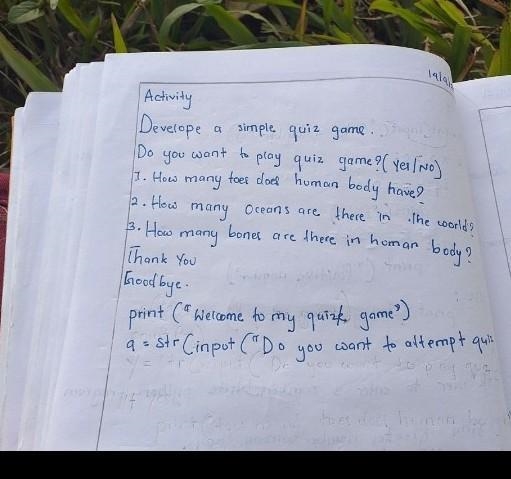 Activity
Develope a simple quiz game.
Do you want to play quiz game? (Yes/No)
1. How many toes does human body have?
2. How many Oceans are there in the world?
3. How many bones are there in human body?
Thank You
Goodbye.
print ("Welcome to my quizk game")
a = str(input ("Do you want to attempt qui